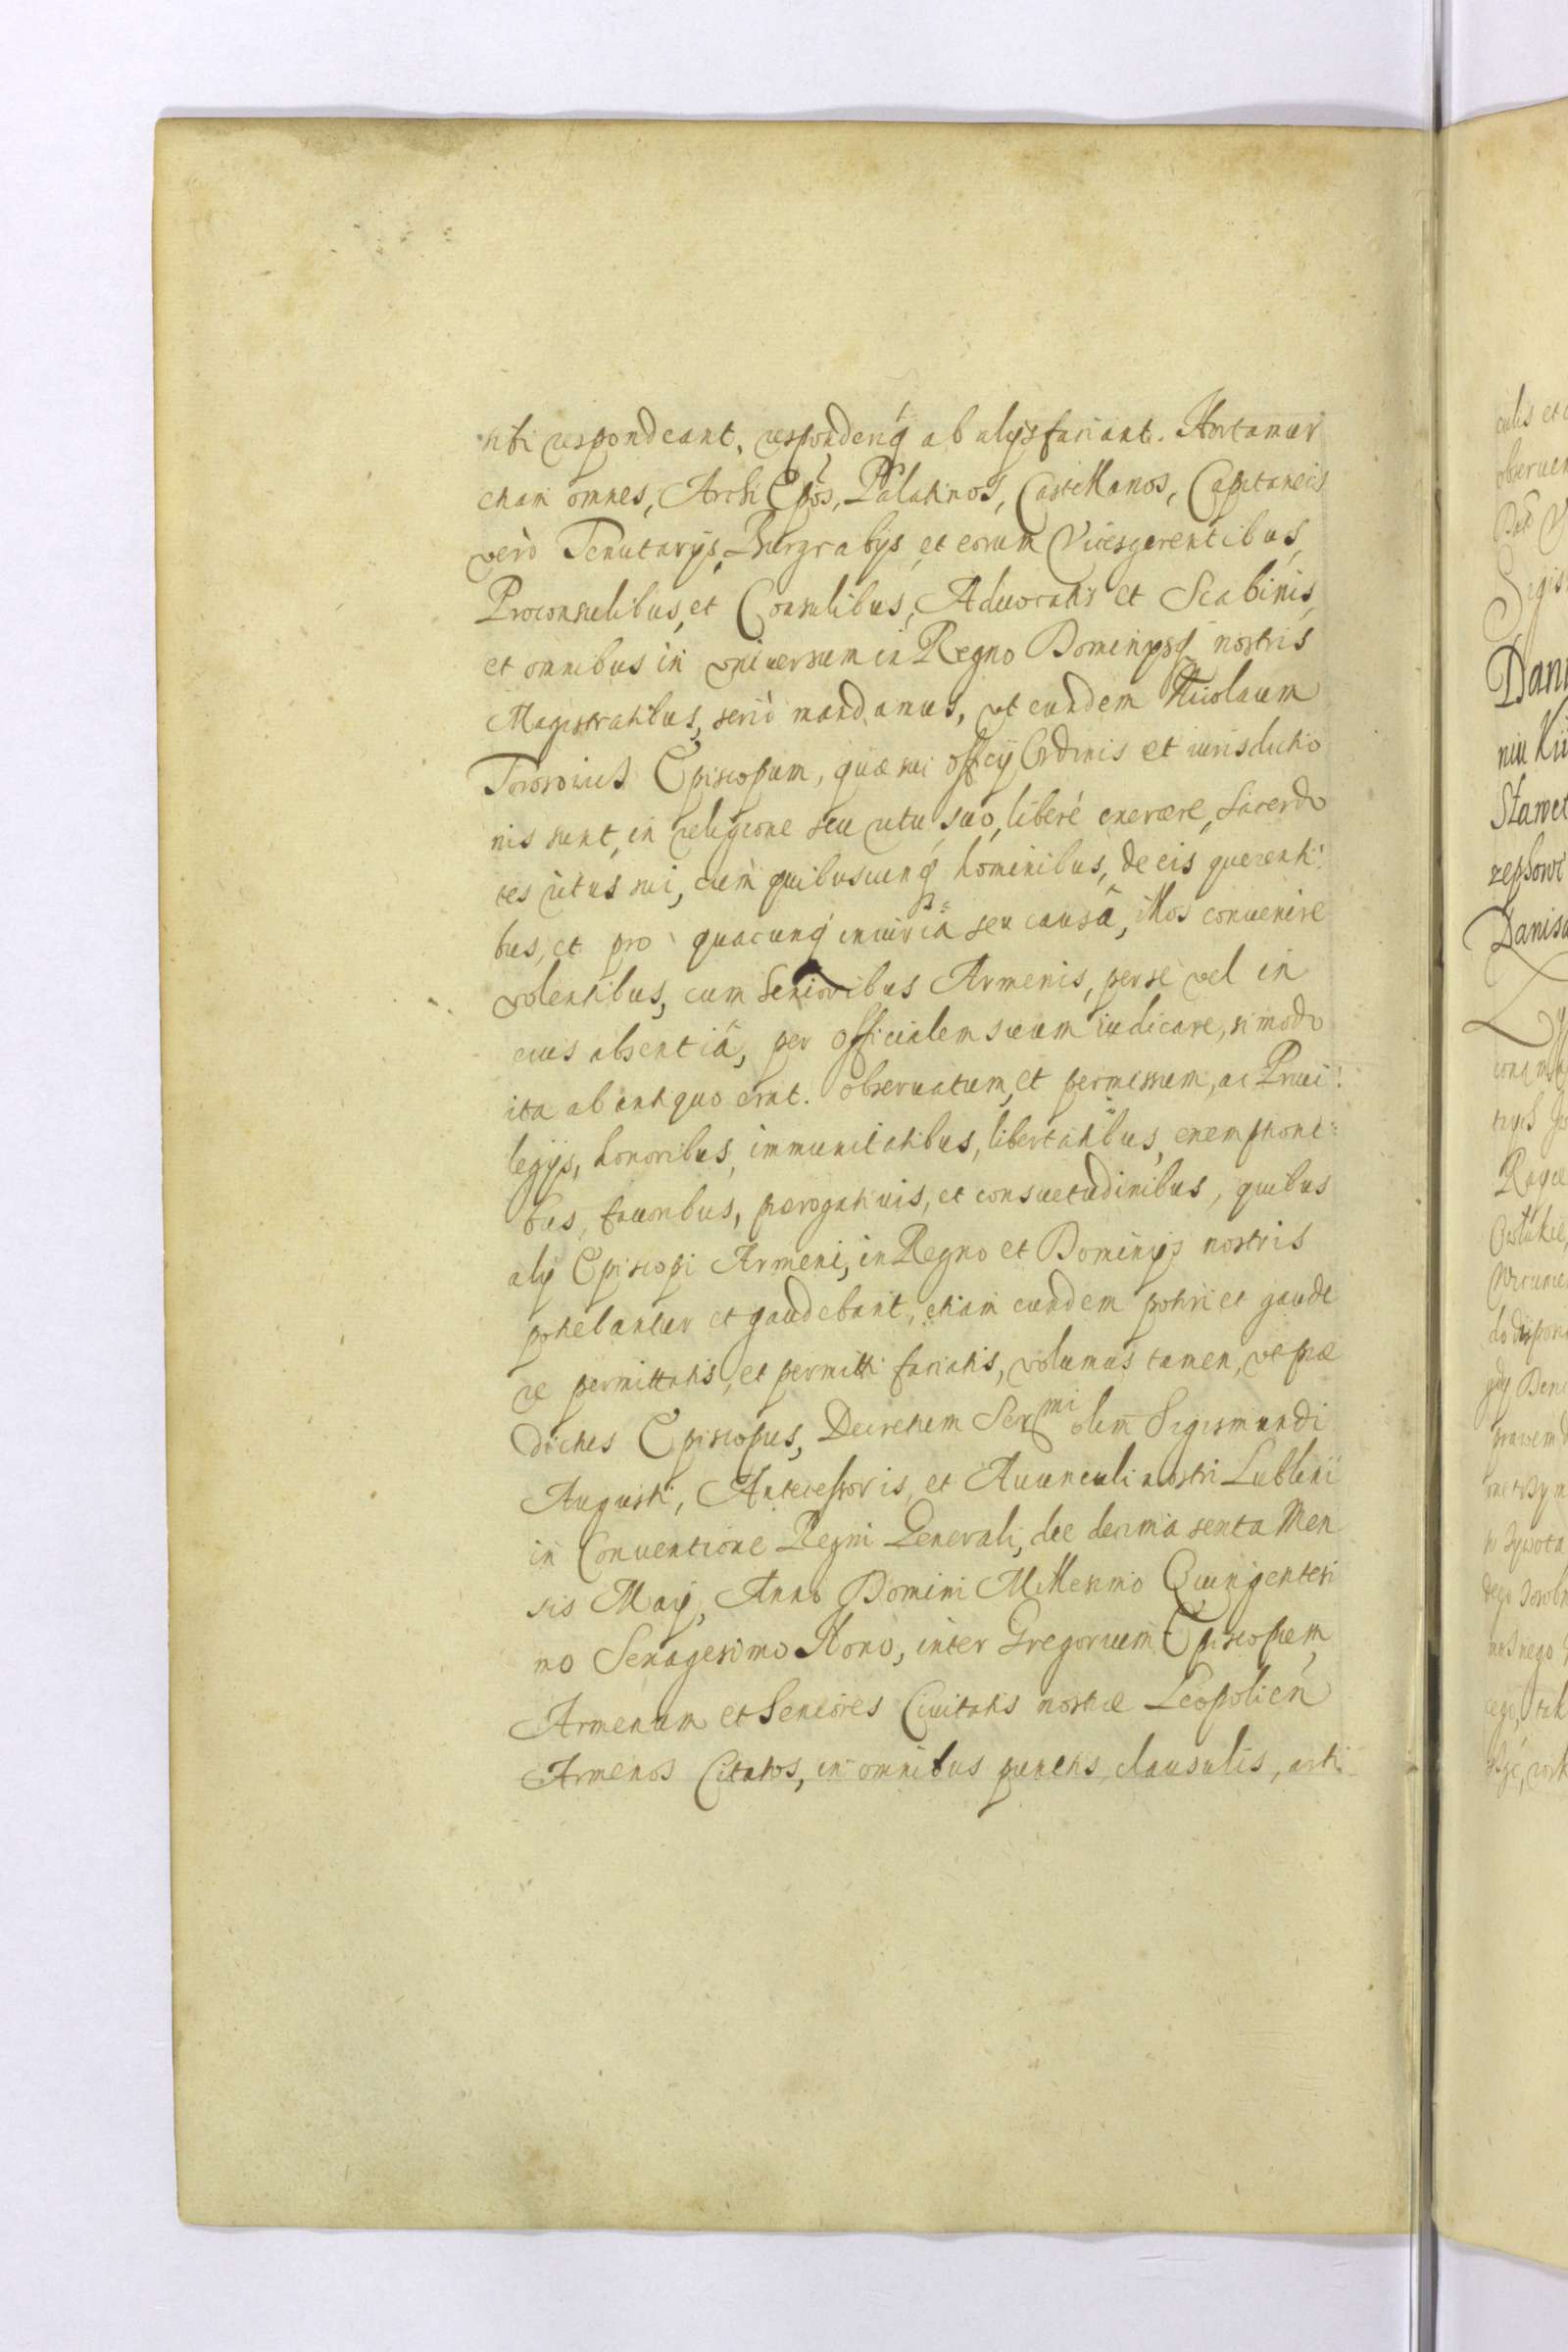 sibi respondeant, responderiq́ ab alijs faciant. Hortamur
etiam omnes, Archi Epõs, Palatinos, Castellanos, Capitaneis
verò Tenutarijs, Burgrabijs et eorum Vicesgerentibus,
Proconsulibus, et Consulibus, Aduocatis et Scabinis,
et omnibus in vniuersum in Regno Dominijsq́ nostris
Magistratibus, seriò mandamus, vt eundem Nicolaum
Torosowicz Episcopum, quæ sui officij Ordinis et iurisdictio
nis sunt, in religione seu ritu suo, liberé exercere, Sacerdo
tes ritus sui, cum quibuscunq́ hominibus, de eis querenti:
bus, et pro quacunq́ iniuriâ seu causâ, illos conuenire
volentibus, cum Senioribus Armenis, per se vel in
eius absentiâ, per Officialem suum iudicare, si modo
ita ab antiquo erat. obseruatum, et permissum, ac Priui:
legijs, honoribus, immunitatibus, libertatibus, exemptioni:
bus, fauoribus, prærogatiuis, et consuetudinibus, quibus
alij Episcopi Armeni, in Regno et Dominijs nostris
potiebantur et gaudebant, etiam eundem potiri et gaude
re permittatis, et permitti faciatis, volumus tamen, vt præ
dictus Episcopus, Decretum Serᵐⁱ olim Sigismundi
Augusti, Antecessoris, et Auunculi nostri Lublini
in Conuentione Regni Generali, die decima sexta Men
sis Maij, Anno Domini Millesimo Quingentesi
mo Sexagesimo Nono, inter Gregorium Episcopum
Armenum et Seniores Ciuitatis nostræ Leopolień
Armenos Citatos, in omnibus punctis, clausulis, arti
culis et
obseruen
Sigis
Dani
niu
Stawet
zephow
Danis